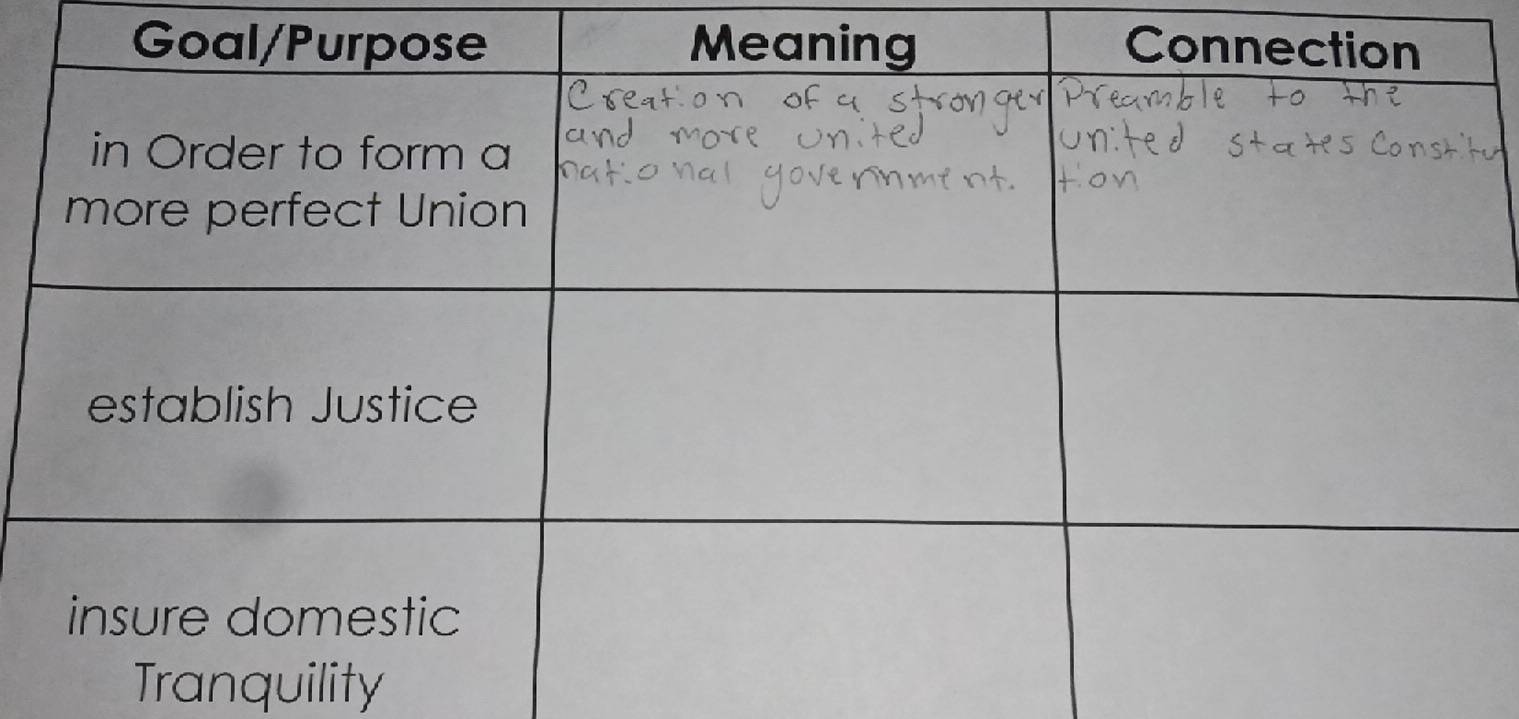 Goal/Purpose
Meaning
Connection
in Order to form a
more perfect Union
Creation of a stronger
and more united
national government.
Preamble to the
united states Constitu
tion
establish Justice
insure domestic
Tranquility